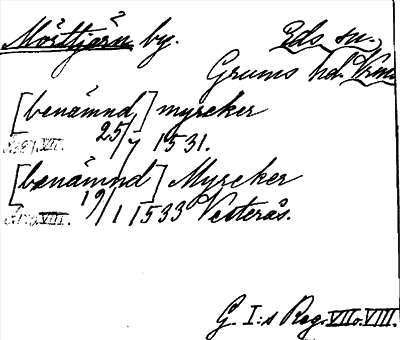 Mörttjärn by. Eds sn.,
Grums hd. Vrml.
[benämnd] myrcker
25/7 1531.
[benämnd] Myrcker
19/1 1533 Vesterås.
G. I:s Reg. VII o. VIII.